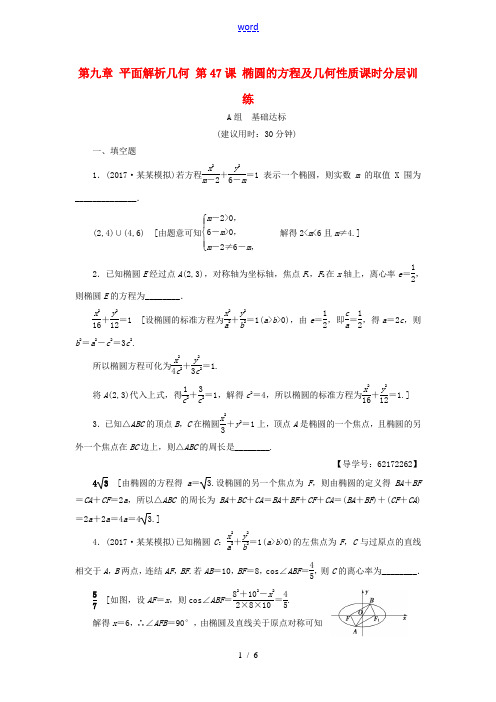 word
第九章 平面解析几何 第47课 椭圆的方程及几何性质课时分层训
练
A组 基础达标
(建议用时：30分钟)
一、填空题
1．(2017·某某模拟)若方程x²/(m－2)＋y²/(6－m)＝1 表示一个椭圆，则实数 m 的取值 X 围为
______________．
(2,4)∪(4,6) [由题意可知{m－2>0，6－m>0，m－2≠6－m， 解得2<m<6且m≠4.]
2．已知椭圆E经过点A(2,3)，对称轴为坐标轴，焦点F₁，F₂在x轴上，离心率e＝1/2，
则椭圆E的方程为________．
x²/16＋y²/12＝1 [设椭圆的标准方程为x²/a²＋y²/b²＝1(a>b>0)，由e＝1/2，即c/a＝1/2，得a＝2c，则
b²＝a²－c²＝3c².
所以椭圆方程可化为x²/4c²＋y²/3c²＝1.
将A(2,3)代入上式，得1/c²＋3/c²＝1，解得c²＝4，所以椭圆的标准方程为x²/16＋y²/12＝1.]
3．已知△ABC的顶点B，C在椭圆x²/3＋y²＝1上，顶点A是椭圆的一个焦点，且椭圆的另
外一个焦点在BC边上，则△ABC的周长是________．
【导学号：62172262】
4√3 [由椭圆的方程得 a＝√3.设椭圆的另一个焦点为 F，则由椭圆的定义得 BA＋BF
＝CA＋CF＝2a，所以△ABC 的周长为 BA＋BC＋CA＝BA＋BF＋CF＋CA＝(BA＋BF)＋(CF＋CA)
＝2a＋2a＝4a＝4√3.]
4．(2017·某某模拟)已知椭圆 C：x²/a²＋y²/b²＝1(a>b>0)的左焦点为 F，C 与过原点的直线
相交于A，B两点，连结AF，BF.若AB＝10，BF＝8，cos∠ABF＝4/5，则C的离心率为________．
5/7 [如图，设AF＝x，则cos∠ABF＝(8²＋10²－x²)/(2×8×10)＝4/5.
解得x＝6，∴∠AFB＝90°，由椭圆及直线关于原点对称可知
y
B
F
F₁
x
A
1 / 6